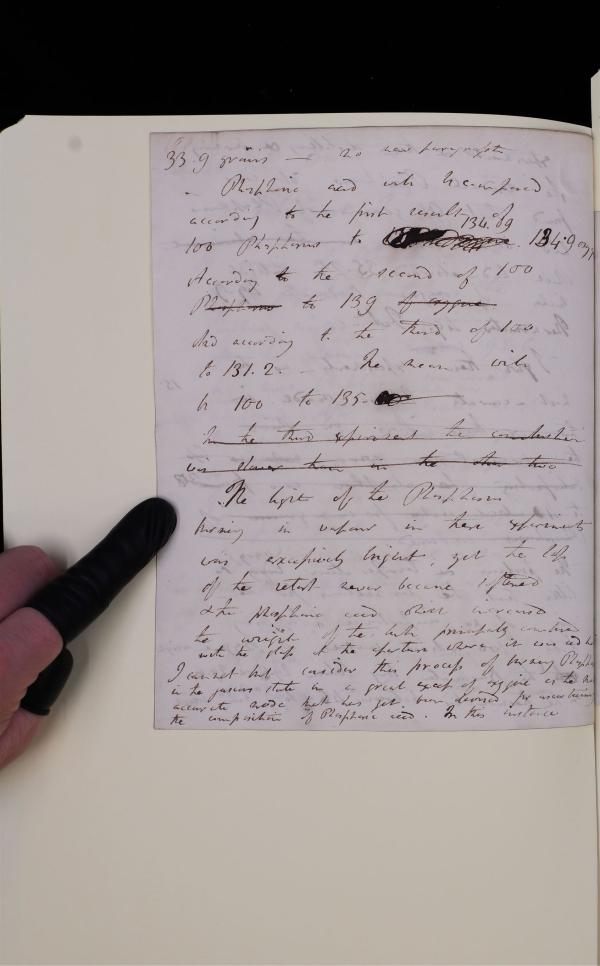 33.9 grains — no new paragraph
- Phosphoric acid will be composed
according to the first result of
134.09
100 Phosphorus to 134.9 oxy
According to the second of 100
Phosphorus to 139 of oxygene
And according to the third of 100
to 131.2. - The mean will
be 100 to 135.
In the third experiment the combustion
was slower than in the other two
The light of the Phosphorus
burning in vapour in these experiments
was excessively bright, yet the top
of the retort never became softened
& the phosphoric acid which increased
the weight of the tube principally combined
with the glass at the aperture where it
I cannot but consider this process of burning Phosph
in the gaseous state in a great excess of oxygene as the most
accurate mode that has yet been devised for ascertaining
the composition of Phosphoric acid. In this instance